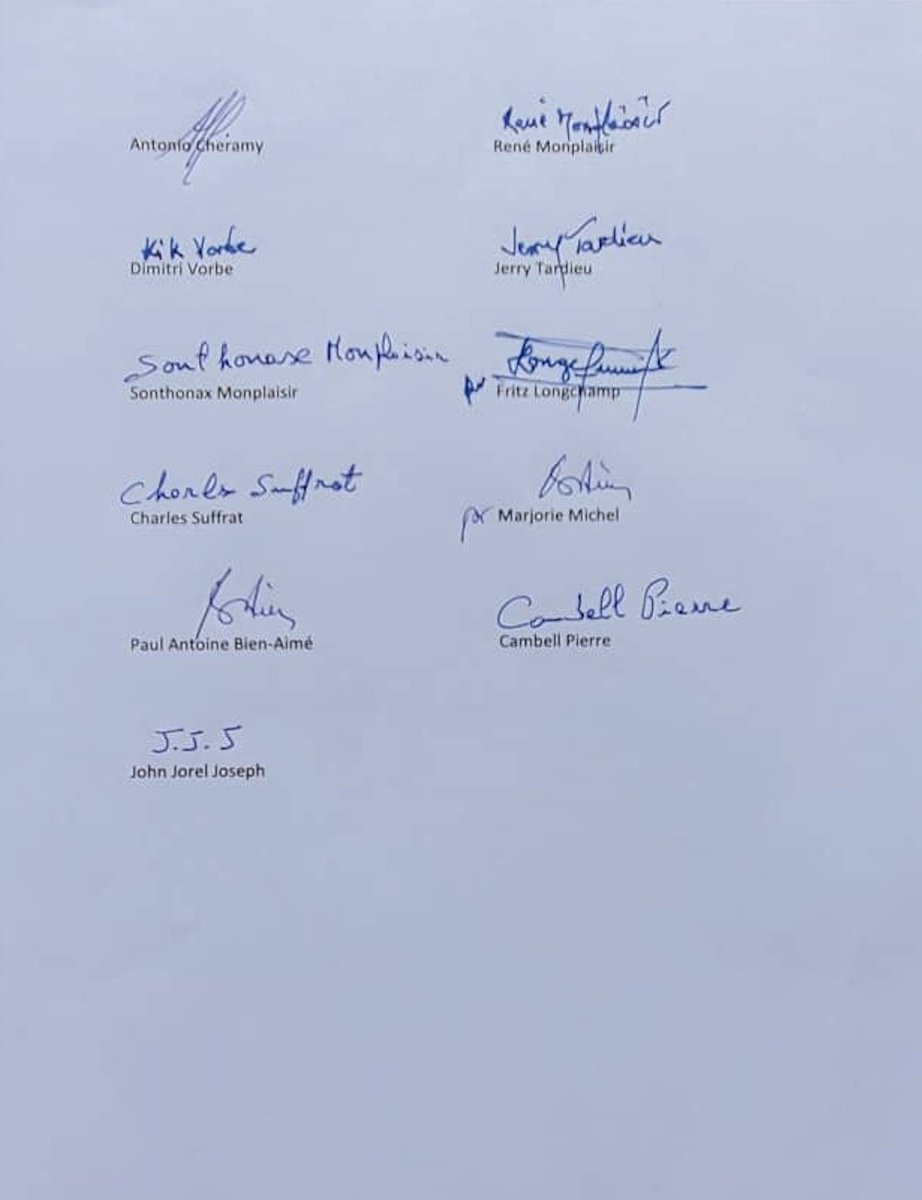 Antonio Chéramy
René Monplaisir
René Monplaisir
Kik Vorbe
Dimitri Vorbe
Jerry Tardieu
Jerry Tardieu
Sonthonaxe Monplaisir
Sonthonax Monplaisir
pr Fritz Longchamp
Charles Suffrat
Charles Suffrat
pr Marjorie Michel
Paul Antoine Bien-Aimé
Cambell Pierre
Cambell Pierre
J.J.J
John Jorel Joseph